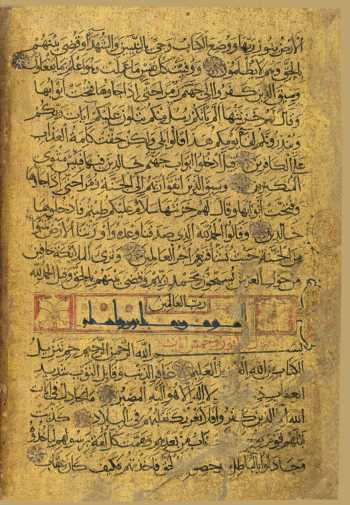 الأرض بنور ربها ووضع الكتاب وجيء بالنبيين والشهداء وقضي بينهم
بالحق وهم لا يظلمون ووفيت كل نفس ما عملت وهو أعلم بما يفعلون
وسيق الذين كفروا إلى جهنم زمرا حتى إذا جاءوها فتحت أبوابها
وقال لهم خزنتها ألم يأتكم رسل منكم يتلون عليكم آيات ربكم
وينذرونكم لقاء يومكم هذا قالوا بلى ولكن حقت كلمة العذاب
على الكافرين قيل ادخلوا أبواب جهنم خالدين فيها فبئس مثوى
المتكبرين وسيق الذين اتقوا ربهم إلى الجنة زمرا حتى إذا جاءوها
وفتحت أبوابها وقال لهم خزنتها سلام عليكم طبتم فادخلوها
خالدين وقالوا الحمد لله الذي صدقنا وعده وأورثنا الأرض نتبوأ
من الجنة حيث نشاء فنعم أجر العاملين وترى الملائكة حافين
من حول العرش يسبحون بحمد ربهم وقضي بينهم بالحق وقيل الحمد لله
رب العالمين
بسم الله الرحمن الرحيم حم تنزيل
الكتاب من الله العزيز العليم غافر الذنب وقابل التوب شديد
العقاب لا إله إلا هو إليه المصير ما يجادل في آيات
الله إلا الذين كفروا فلا يغررك تقلبهم في البلاد كذبت
قبلهم قوم من بعدهم وهمت كل أمة برسولهم ليأخذوه
وجادلوا بالباطل ليدحضوا الحق فأخذتهم فكيف كان عقاب